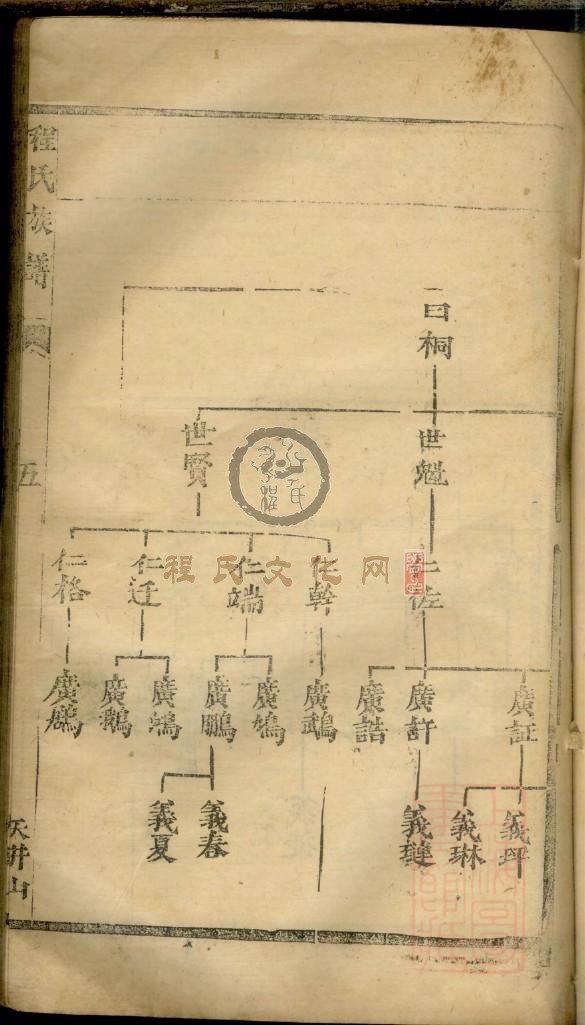 曰桐
世魁
世賢
仁佐
仁幹
仁端
仁迁
仁格
廣証
廣許
廣誥
廣鵡
廣鳩
廣鵬
廣鵝
義坪
義琳
義璉
義春
義夏
程氏族譜
五
天井山
程氏文化网